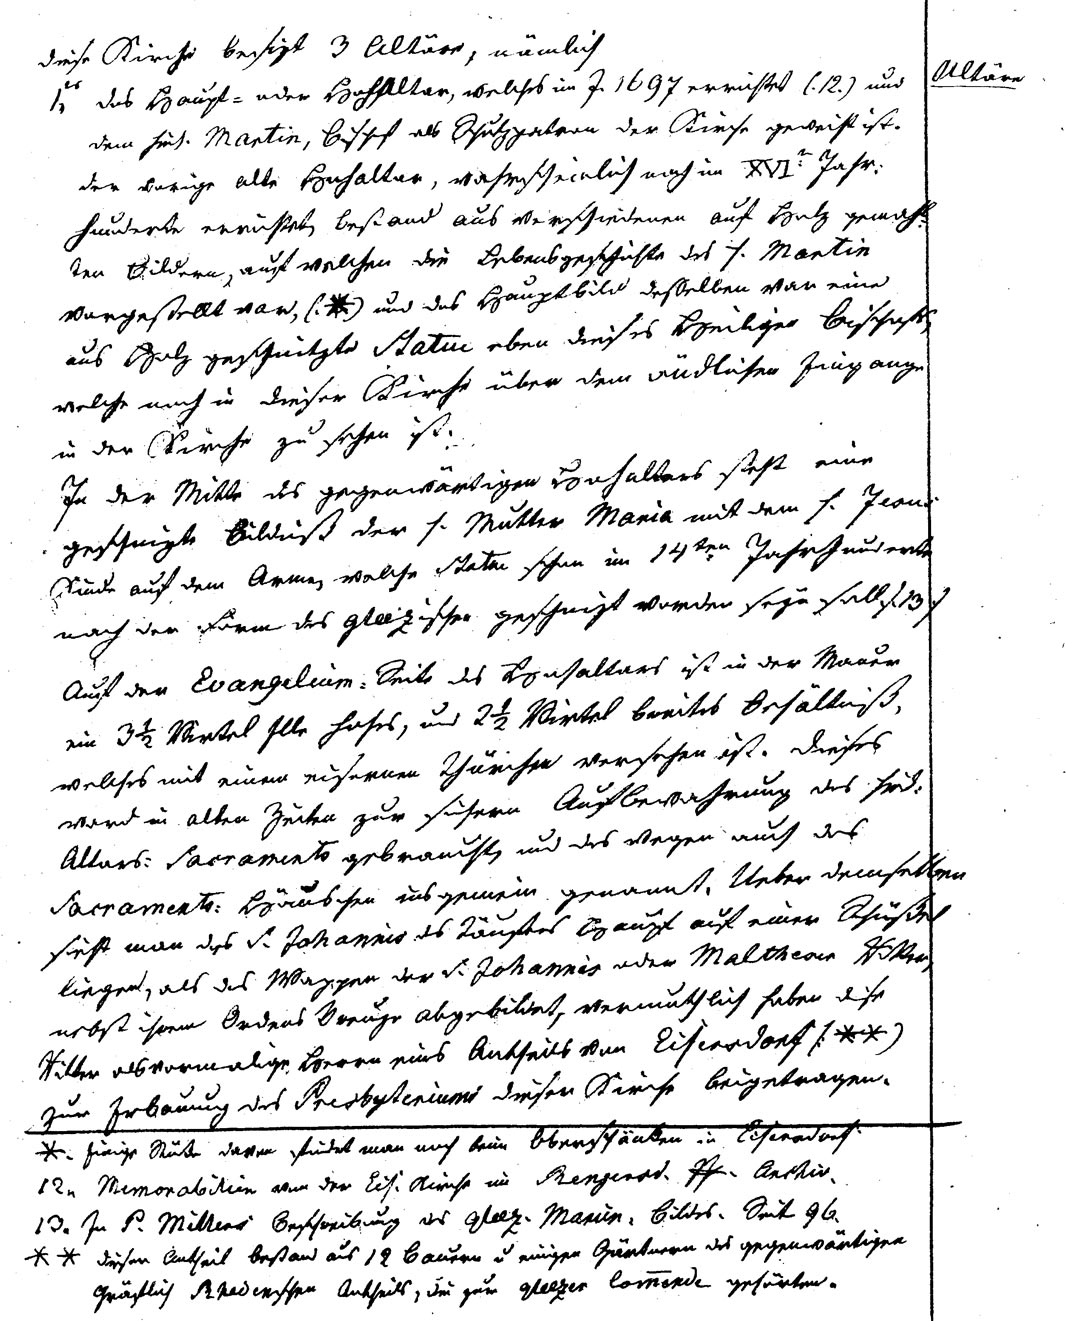 diese Kirche besizt 3 Altäre, nämlich
Altäre
1, tes das Haupt= oder HochAltar, welches im J. 1697 errichtet (:12.) und
dem heil. Martin, Bischof als Schutzpatron der Kirche geweiht ist.
der vorige alte Hochaltar, wahrscheinlich noch im XVI.n Jahr:
hunderte errichtet, bestand aus verschiedenen auf Holz gemahl:
ten Bildern, auf welchen die Lebensgeschichte des h. Martin
vorgestellt war, (:*) und das Hauptbild desselben war eine
aus Holz geschnitzte Statue eben dieses Heiligen Bischofs,
welche noch in dieser Kirche über dem südlichen Eingange
in der Kirche zu sehen ist.
In der Mitte des gegenwärtigen Hochaltars steht eine
geschnizte Bildniß der h. Mutter Maria mit dem h. Jesus
Kinde auf dem Arme, welche Statue schon im 14ten Jahrhunderte
nach der Form des glazischen geschnizt worden seyn soll (:13)
Auf der Evangelium=Seite des Hochaltars ist in der Mauer
ein 3½ Virtel Elle hohes, und 2½ Virtel breites Behältniß,
welches mit einem eisernen Thürchen versehen ist. dieses
ward in alten Zeiten zur sichern Aufbewahrung des heil:
Altars: Sacraments gebraucht, und des wegen auch das
Sacraments: Häuschen insgemein genannt. Ueber demselben
sieht man des S. Johannis des Täufers Haupt auf einer Schüßel
liegen, als das Wappen der S. Johannis oder Maltheser Ritter,
nebst ihrem Ordens Kreuze abgebildet, vermuthlich haben diese
Ritter als vormalige Herrn eines Antheils von Eisersdorf (:**)
zur Erbauung des Presbyteriums dieser Kirche beigetragen.
*. Einige Stüke davon findet man noch beim Oberschänken in Eisersdorf.
12. Memorabilien von der Eis. Kirche im Rengersd. Pf. Archiv.
13. In P. Millers Beschreibung des glaz. Marien. Bildes. Seit 96.
** dieser Antheil bestand aus 12 Bauern u einigen Gärtnern des gegenwärtigen
Gräflich Rhedenschen Antheils, die zur glazer Com̄ende gehörten.